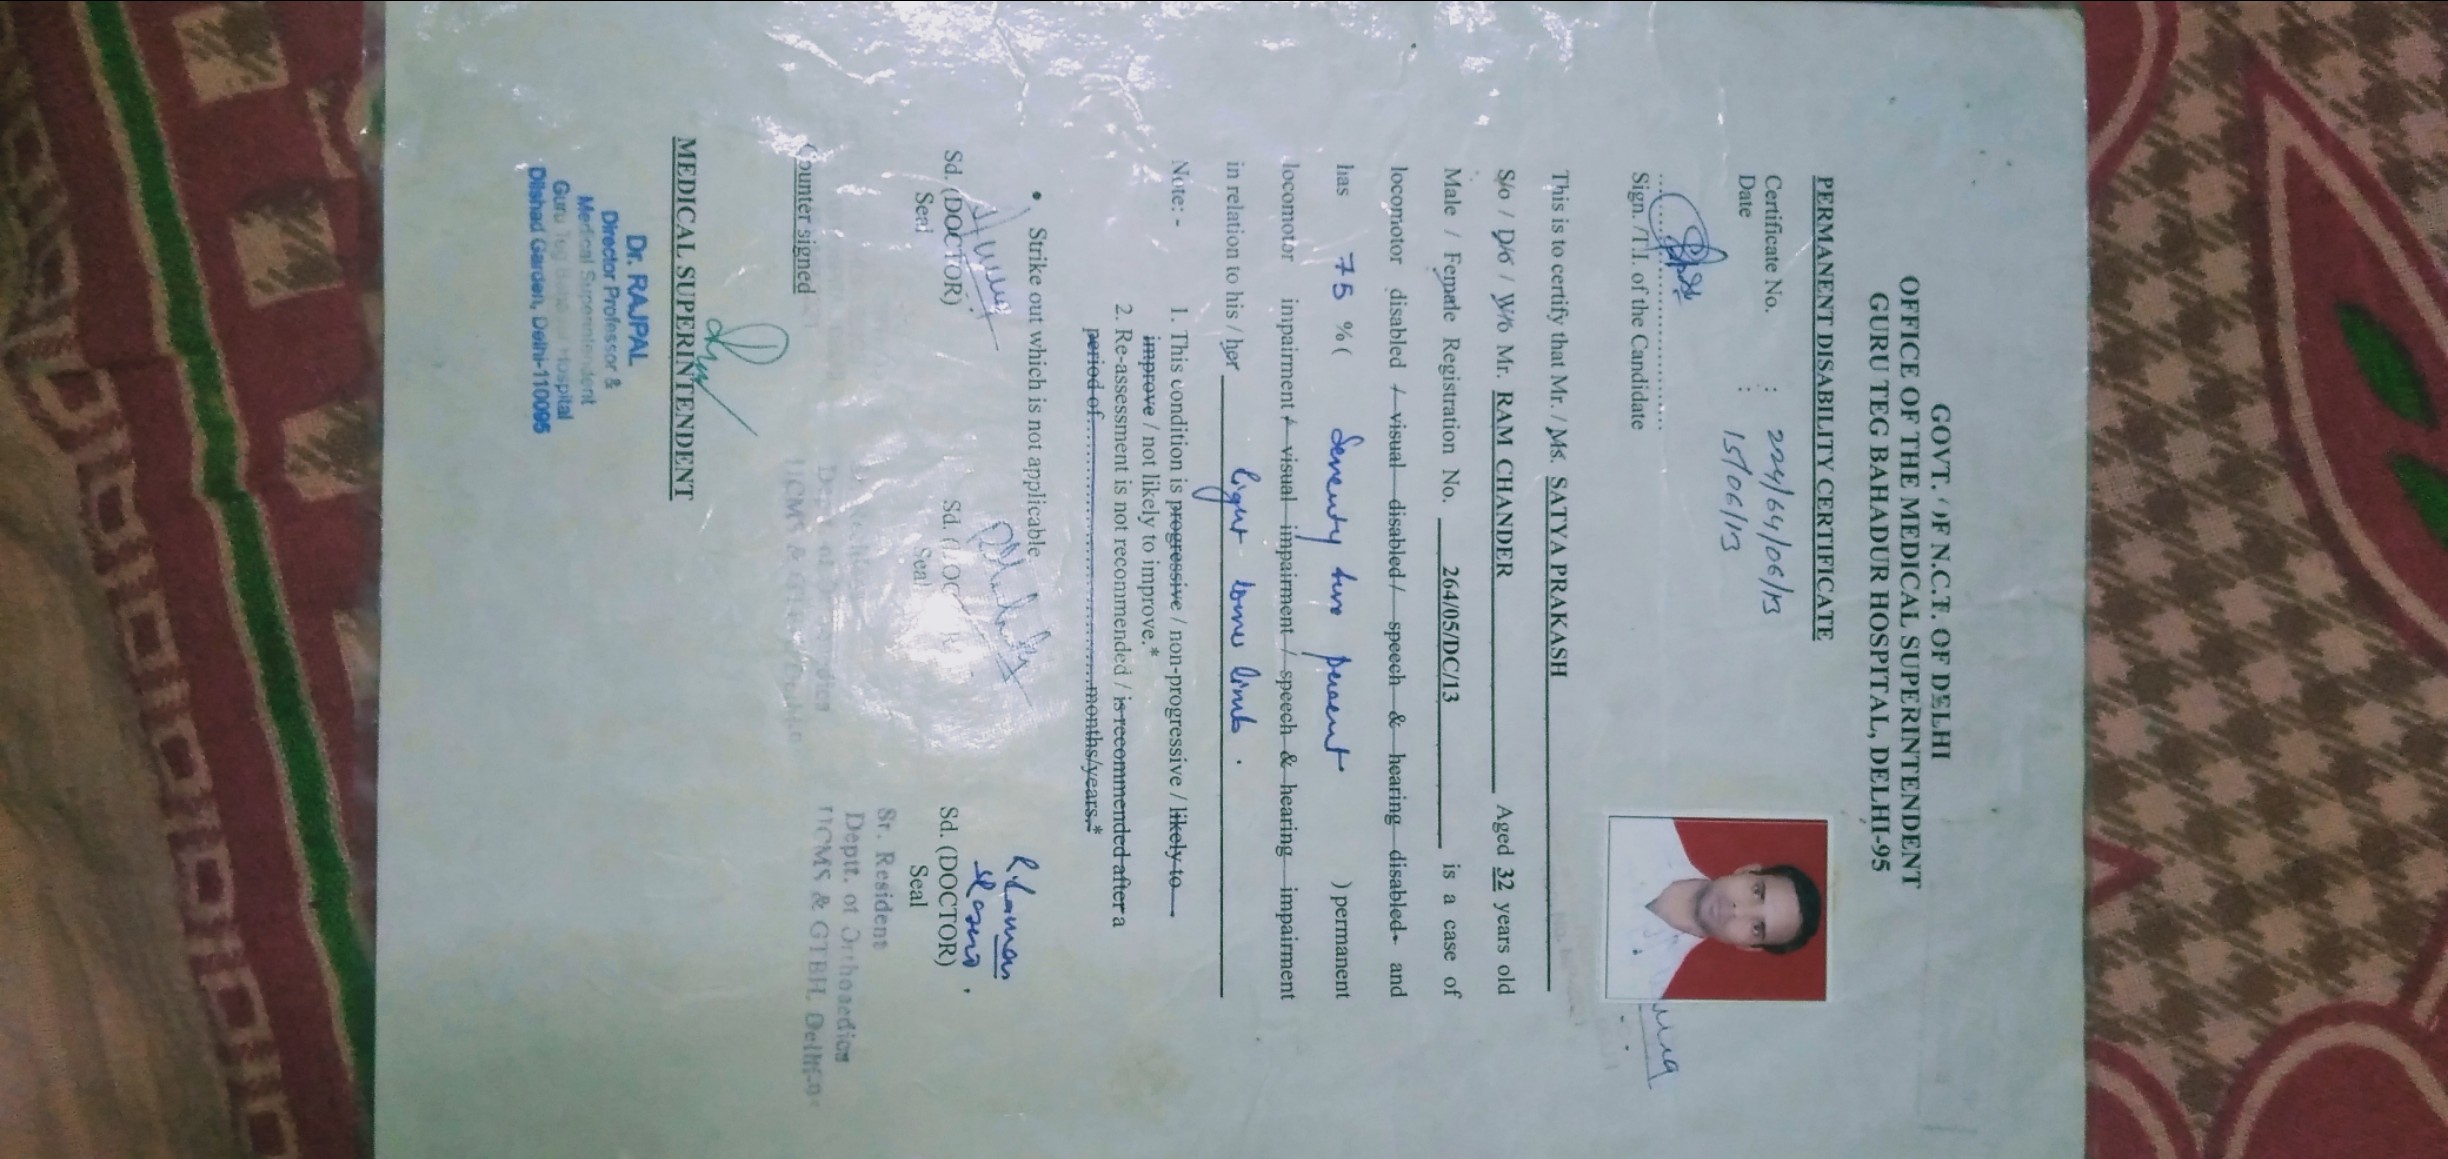 GOVT. OF N.C.T. OF DELHI
OFFICE OF THE MEDICAL SUPERINTENDENT
GURU TEG BAHADUR HOSPITAL, DELHI-95
PERMANENT DISABILITY CERTIFICATE
Certificate No. : 224/64/06/13
Date : 15/06/13
Sign. /T.I. of the Candidate
This is to certify that Mr. / Ms. SATYA PRAKASH
S/o / D/o / W/o Mr. RAM CHANDER Aged 32 years old
Male / Female Registration No. 264/05/DC/13 is a case of
locomotor disabled / visual disabled / speech & hearing disabled and
has 75 % ( Seventy five percent ) permanent
locomotor impairment / visual impairment / speech & hearing impairment
in relation to his / her Right lower limb.
Note: - 1. This condition is progressive / non-progressive / likely to
improve / not likely to improve.*
2. Re-assessment is not recommended / is recommended after a
period of..............................months/years.*
• Strike out which is not applicable
Sd. (DOCTOR) Sd. Sd. (DOCTOR)
Seal Seal Seal
Sr. Resident
Deptt. of Orthoaedics
UCMS & GTBH, Delhi
Counter signed
MEDICAL SUPERINTENDENT
Dr. RAJPAL
Director Professor &
Medical Superintendent
Guru Teg Bahadur Hospital
Dilshad Garden, Delhi-110095